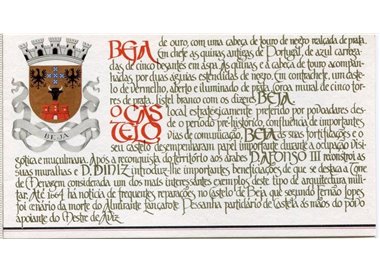 BEJA
BEJA de ouro, com uma cabeça de touro de negro realçada de prata.
Em chefe as quinas antigas de Portugal, de azul carrega-
das, de cinco besantes em aspa. As quinas e a cabeça de touro acompan-
hadas, por duas aguias estendidas de negro. Em contrachefe, um caste-
lo de vermelho, aberto e iluminado de prata. Coroa mural de cinco tor-
res de prata. Listel branco com os dizeres BEJA.
O CASTELO local estrategicamente preferido por povoadores des-
de o período pré-histórico, confluência de importantes
vias de comunicação, BEJA as suas fortificações e o
seu castelo desempenharam papel importante durante a ocupação visi-
gótica e muçulmana. Após a reconquista do território aos árabes D. AFONSO III reconstroi as
suas muralhas e D. DINIZ introduz-lhe importantes beneficiações de que se destaca a Torre
de Menagem considerada um dos mais interessantes exemplos deste tipo de arquitectura mili-
tar. Até 1664 há notícia de frequentes reparações no Castelo de Beja que segundo Fernão Lopes,
foi cenário da morte do Almirante Lançarote Pessanha partidário de Castela às mãos do povo
apoiante do Mestre de Aviz.